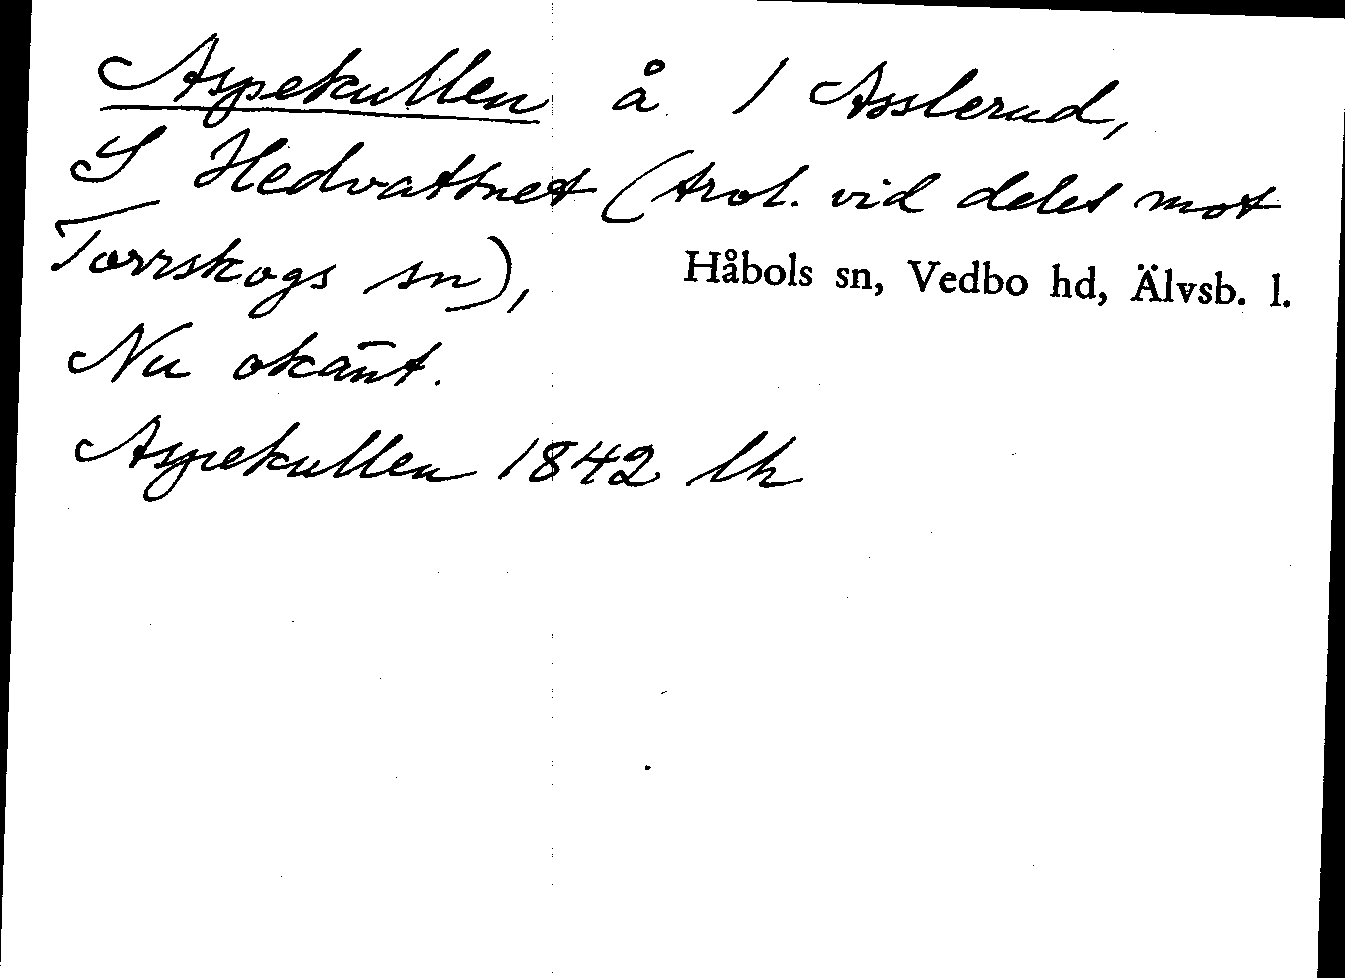 Aspekullen å 1 Asslerud,
S Hedvattnet (trol. vid delet mot
Torrskogs sn), Håbols sn, Vedbo hd, Älvsb. l.
Nu okän̄t.
Aspekullen 1842 lh